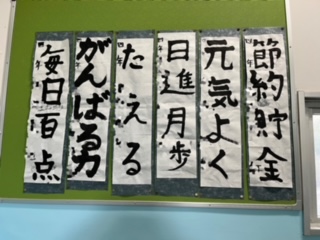 節約貯金
元気よく
日進月歩
たえる
がんばる力
毎日百点